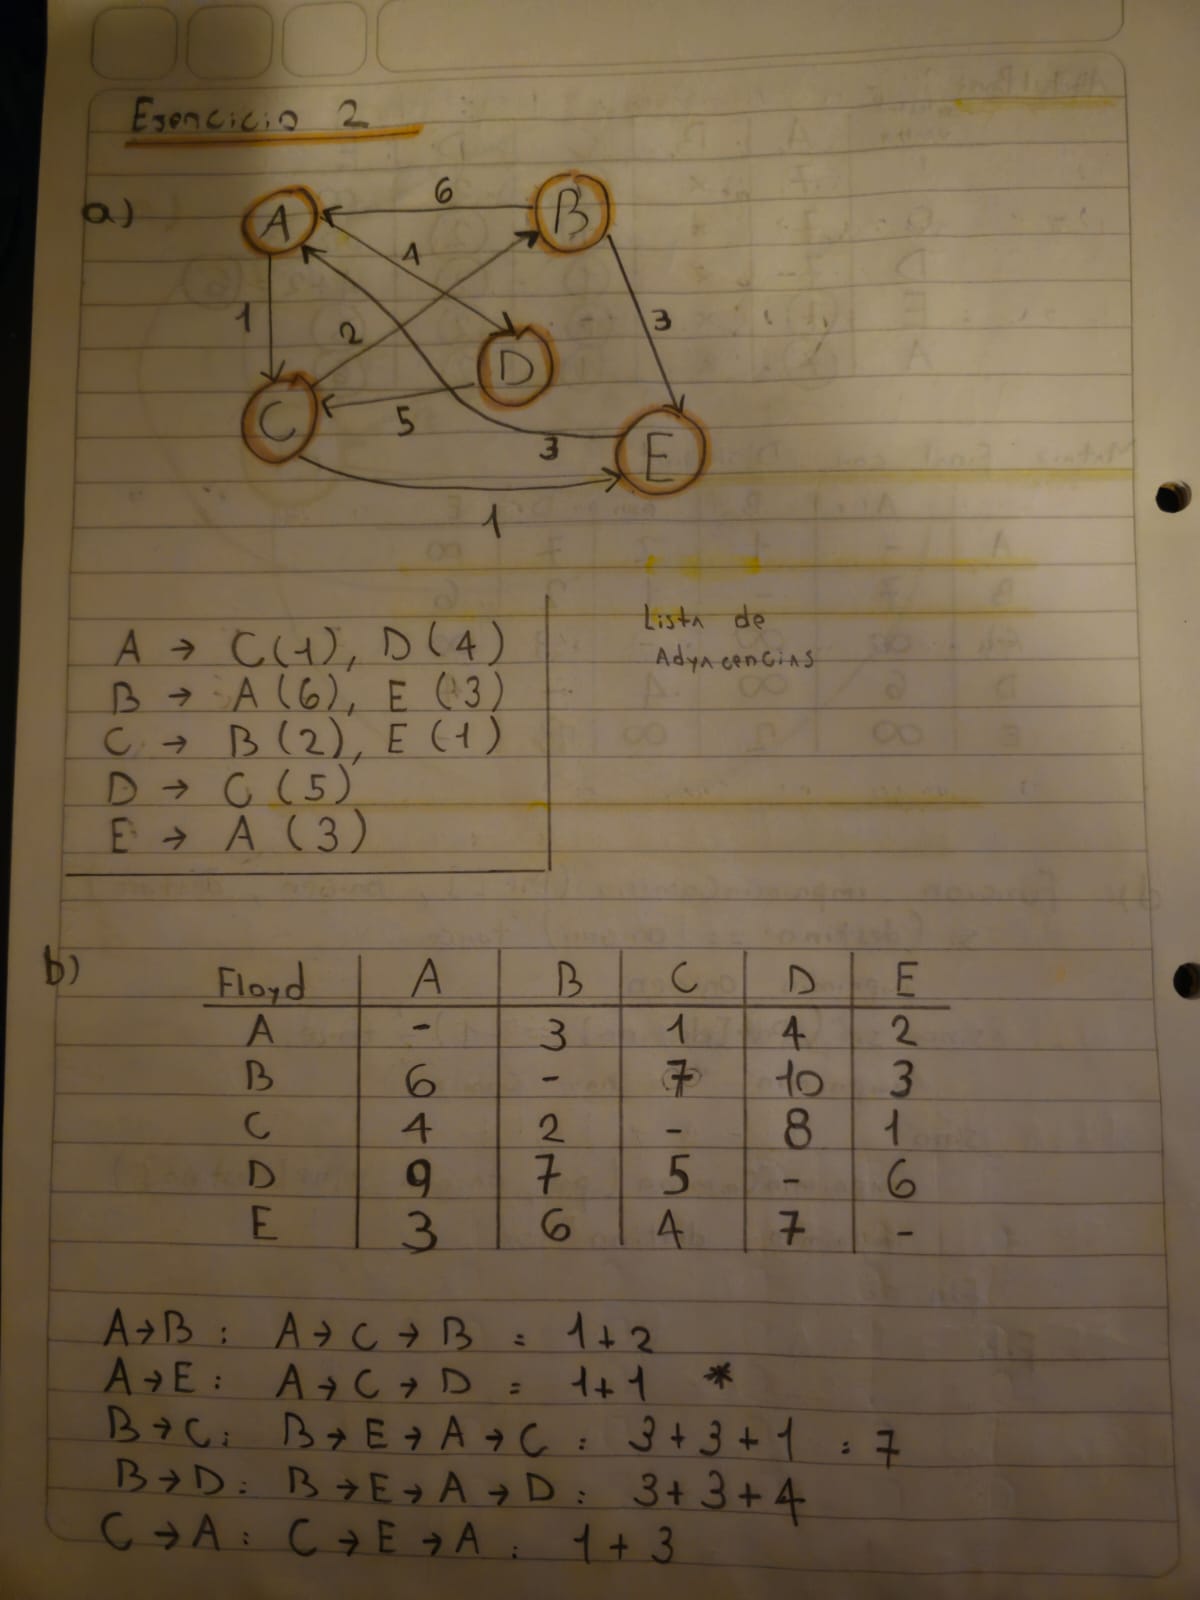 Ejercicio 2
a)
A 6 B
4
1 2 3
D
C 5
3 E
1
A → C(1), D(4)
B → A(6), E(3)
C → B(2), E(1)
D → C(5)
E → A(3)
Lista de
Adyacencias
b)
Floyd A B C D E
A - 3 1 4 2
B 6 - 7 10 3
C 4 2 - 8 1
D 9 7 5 - 6
E 3 6 4 7 -
A→B: A→C→B = 1+2
A→E: A→C→D = 1+1 *
B→C: B→E→A→C: 3+3+1 : 7
B→D: B→E→A→D: 3+3+4
C→A: C→E→A: 1+3